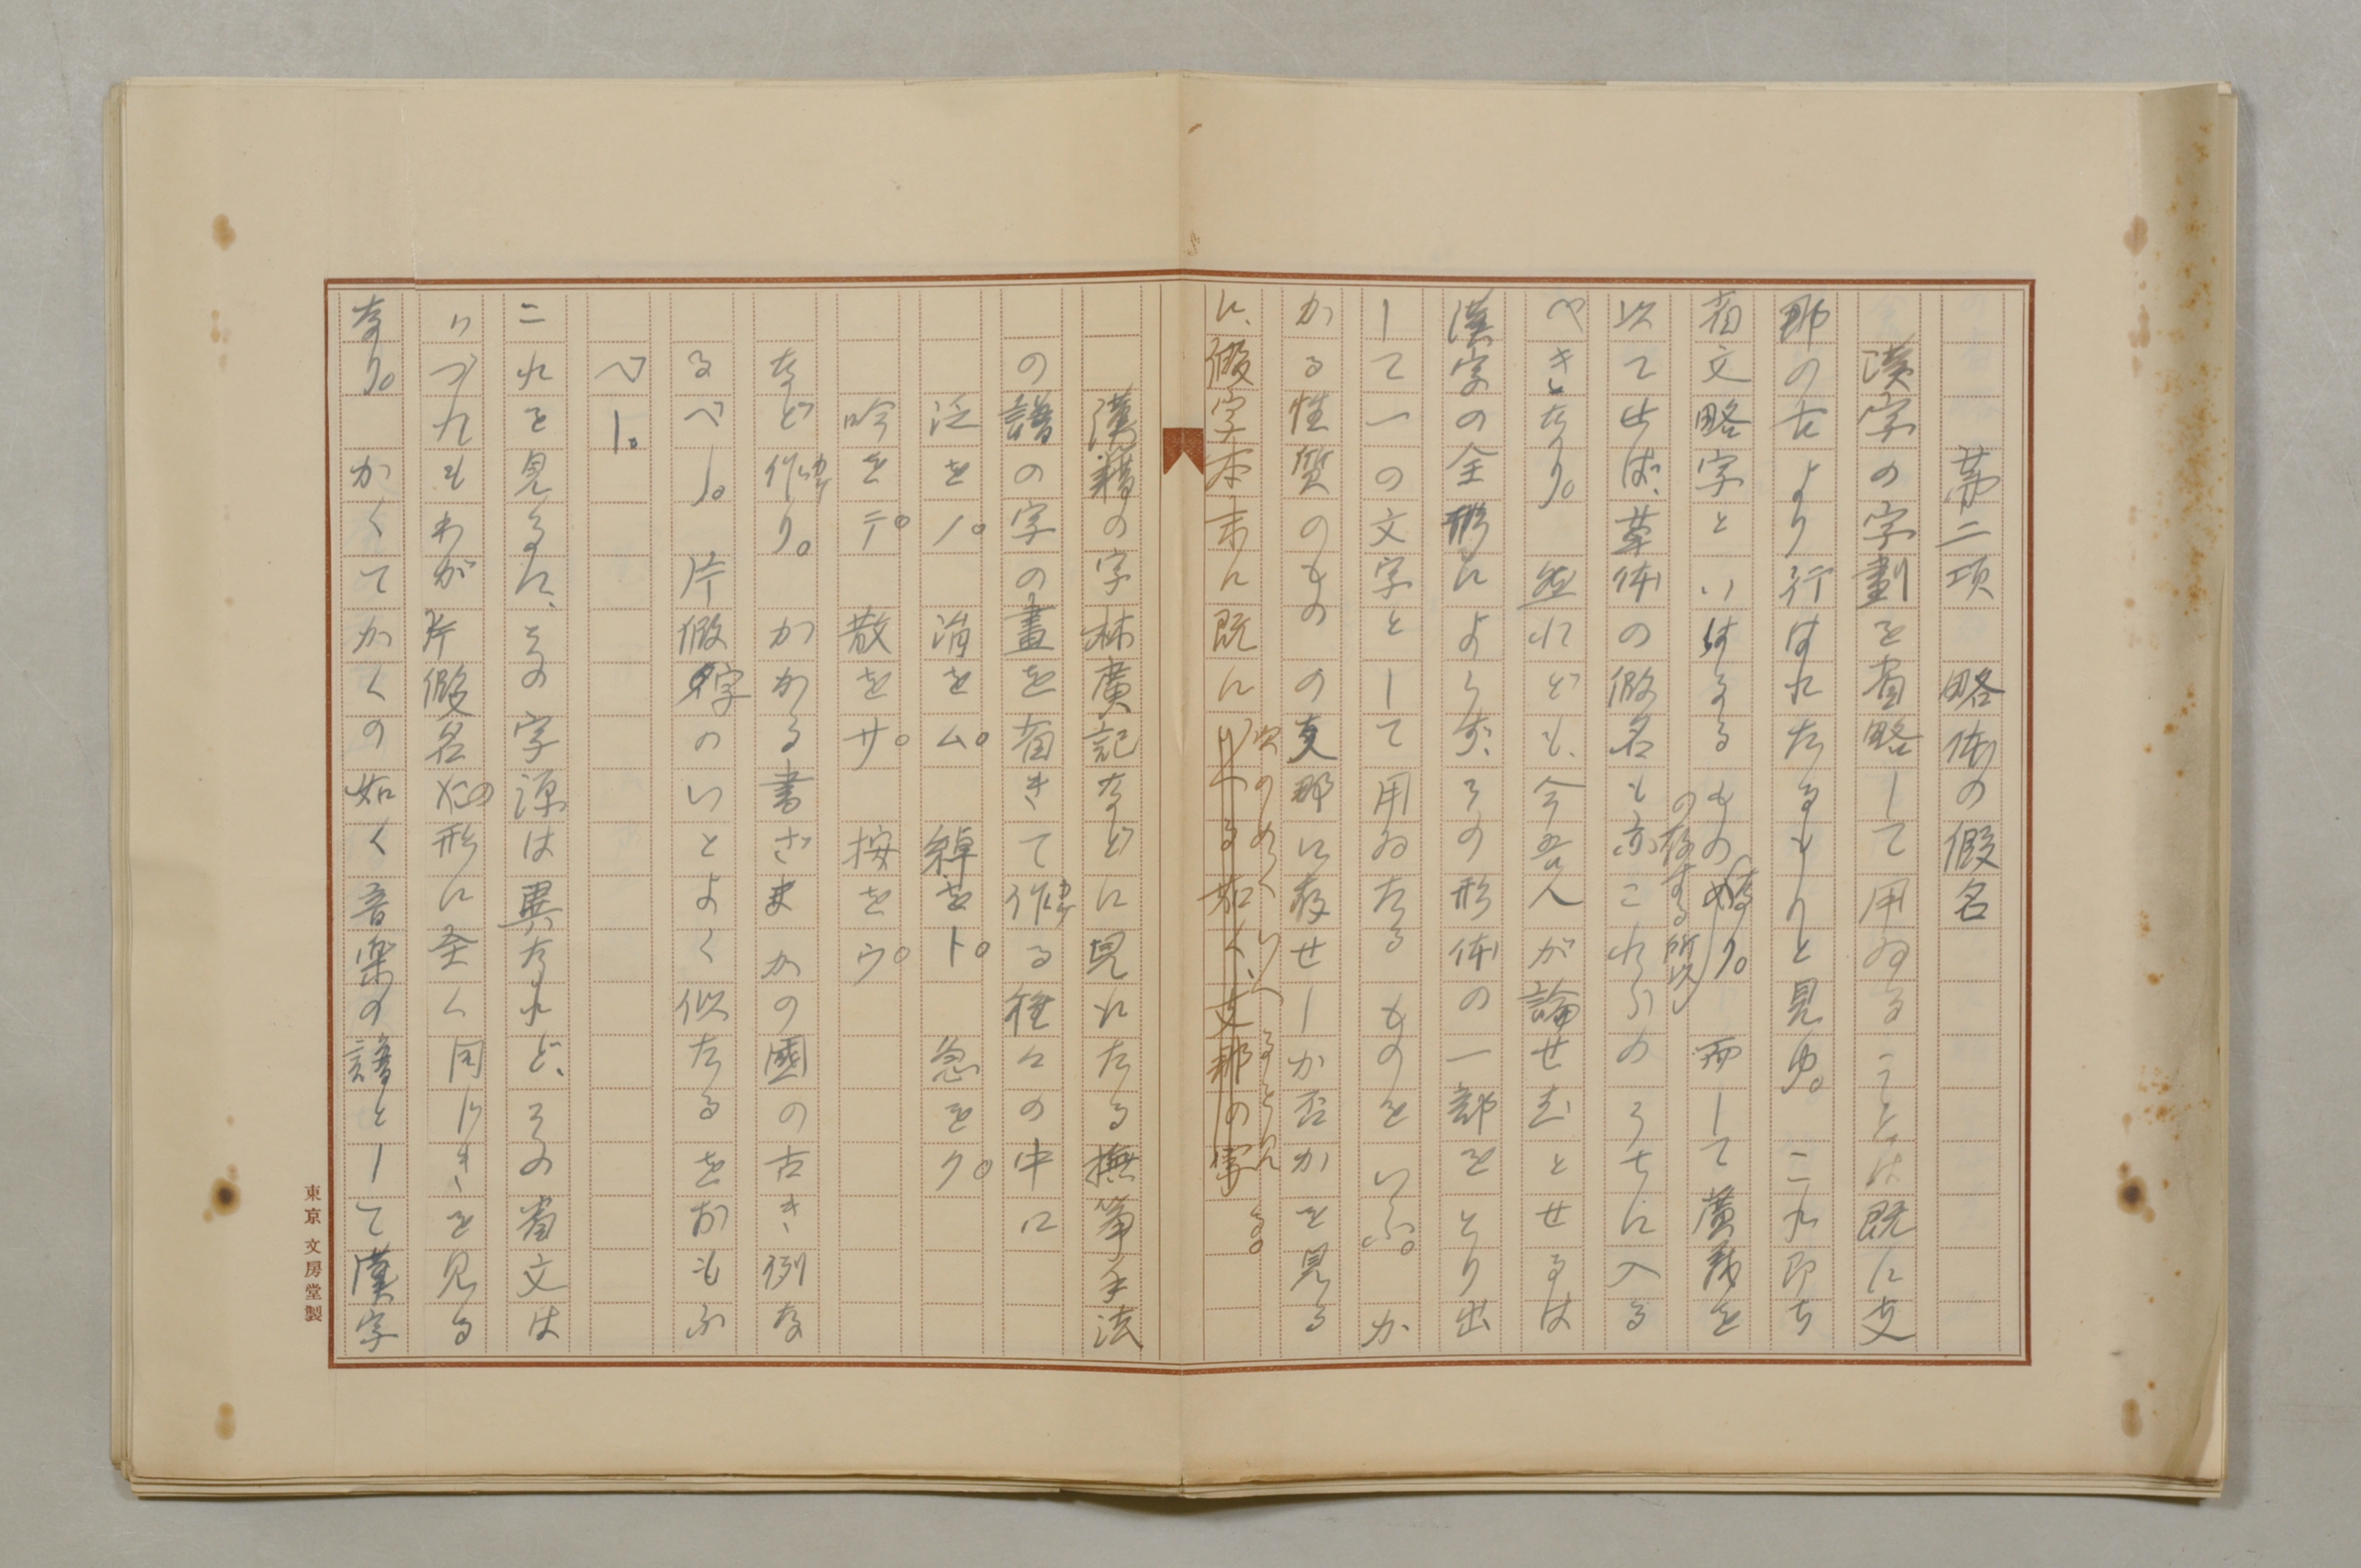 第二項　略体の假名
漢字の字劃を省略して用ゐることは既に支
那の古より行はれたるものと見ゆ。これ即ち
省文略字といはるるもの
の存する所以なり。而して廣義を
以て せば、草体の假名も亦これらのうちに入る
べきなり。然れども、今吾人が論せむとせるは
漢字の全形によらず、その形体の一部をとり出
して一の文字として用ゐたるものをいふ。か
かる性質のものの支那に存せしか否かを見る
次の如くいへるところあり。
に、假字本末に既に
いへる如く、支那の字
漢籍の字林廣記などに見れたる撫箏手法
の譜の字の畫を省きて作る種々の中に
泛をノ。　涓をム。　綽をト。　急をク。
吟をテ。　散をサ。　按をウ。
など作り。　かかる書ざまかの國の古き例な
るべし。　片假字のいとよく似たるをおもふ
べし。
これを見るに、その字源は異なれど、その省文は
いづれもわが片假名の形に全く同じきを見る
なり。　かくてかくの如く音楽の譜として漢字
東京 文房堂製